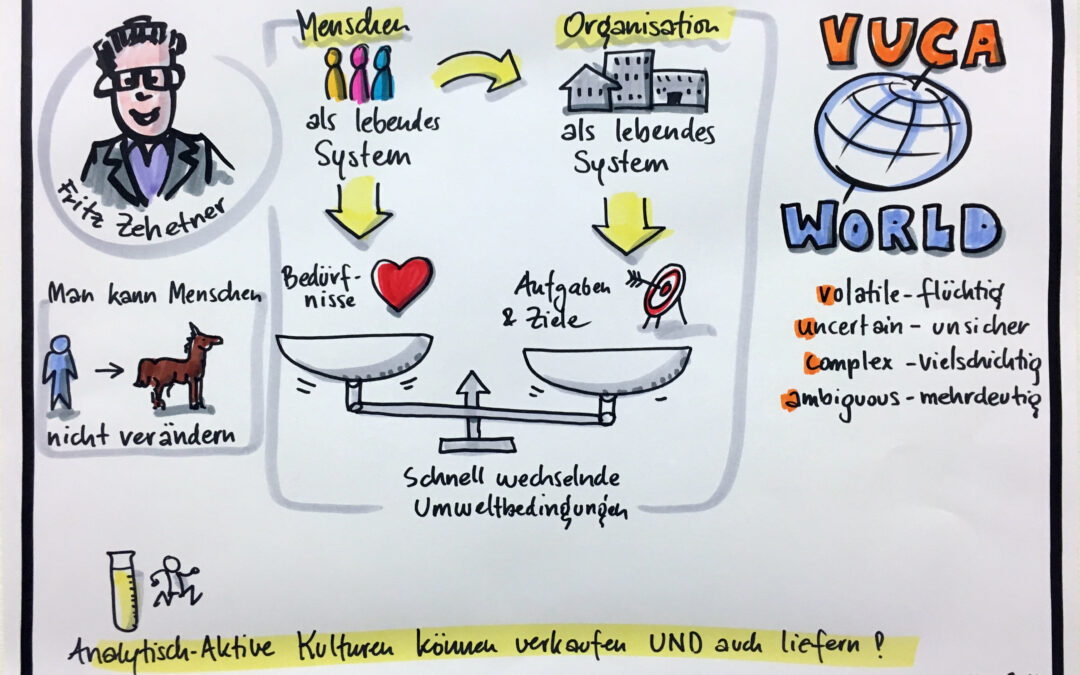 Fritz Zehetner
Menschen
als lebendes
System
Organisation
als lebendes
System
Bedürf-
nisse
Aufgaben
& Ziele
Schnell wechselnde
Umweltbedingungen
Man kann Menschen
nicht verändern
VUCA
WORLD
volatile - flüchtig
uncertain - unsicher
complex - vielschichtig
ambiguous - mehrdeutig
Analytisch-Aktive Kulturen können verkaufen UND auch liefern!